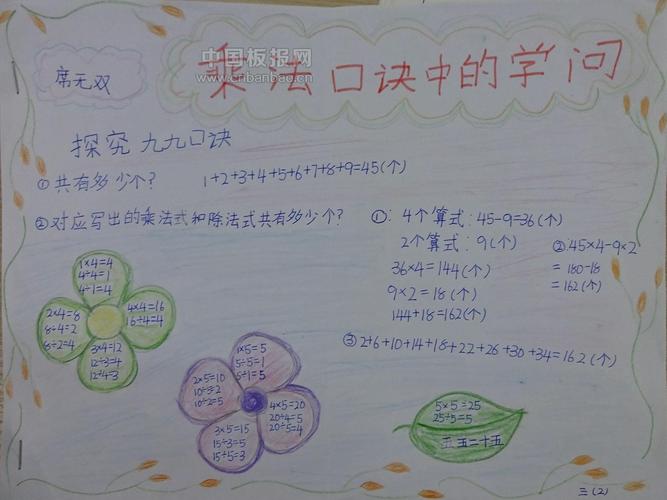 中国板报网
www.cnbanbao.cn
席无双
乘法口诀中的学问
探究九九口诀
①共有多少个? 1+2+3+4+5+6+7+8+9=45(个)
②对应写出的乘法式和除法式共有多少个?
①: 4个算式: 45-9=36(个)
2个算式: 9(个)
36×4=144(个)
9×2=18(个)
144+18=162(个)
②45×4-9×2
=180-18
=162(个)
③2+6+10+14+18+22+26+30+34=162(个)
1×4=4
4÷4=1
4÷1=4
2×4=8
8÷4=2
8÷2=4
4×4=16
16÷4=4
3×4=12
12÷3=4
12÷4=3
1×5=5
5÷5=1
5÷1=5
2×5=10
10÷5=2
10÷2=5
4×5=20
20÷4=5
20÷5=4
3×5=15
15÷3=5
15÷5=3
5×5=25
25÷5=5
五五二十五
三(2)